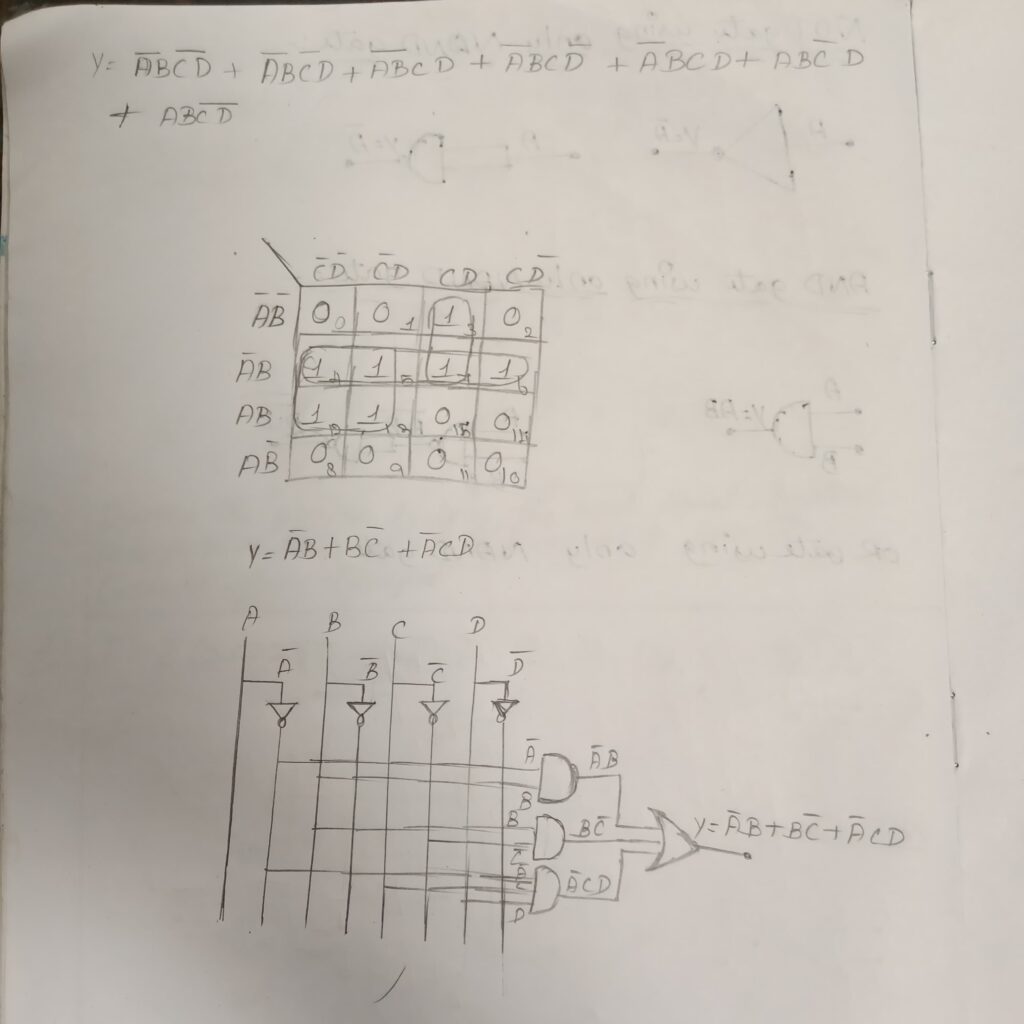 Y= A̅BC̅D̅ + A̅BC̅D + A̅B̅CD + A̅BCD̅ + A̅BCD + ABC̅D
+ ABC̅D̅
C̅D̅ C̅D CD CD̅
A̅B̅ 0₀ 0₁ 1₃ 0₂
A̅B 1₄ 1₅ 1₇ 1₆
AB 1₁₂ 1₁₃ 0₁₅ 0₁₄
AB̅ 0₈ 0₉ 0₁₁ 0₁₀
Y= A̅B+BC̅+A̅CD
A B C D
A̅ B̅ C̅ D̅
A̅ A̅B
B
B BC̅
C̅
Y= A̅B+BC̅+A̅CD
A̅ A̅CD
C
D